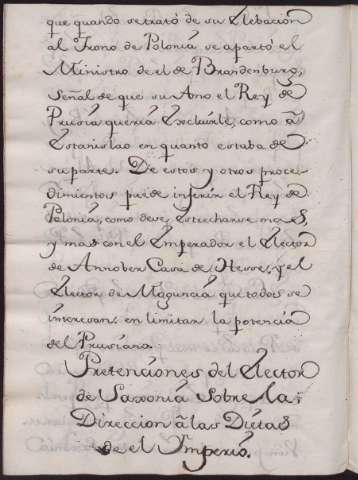 que quando se trató de su Elebacion
al Trono de Polonia se apartó el
Ministro de el de Brandenburg,
señal de que su Amo el Rey de
Prusia queria Excluirle, como a
Estanislao en quanto estaba de
su parte. De estos y otros proce-
dimientos puede inferir el Rey de
Polonia, como deve, estrecharse mas,
y mas con el Emperador el Elector
de Annober Casa de Hesse, y el
Elector de Maguncia que todos se
interesan en limitar la potencia
del Prusiano.
Pretenciones del Elector
de Saxonia Sobre la
Direccion â las Dietas
de el Ymperio.